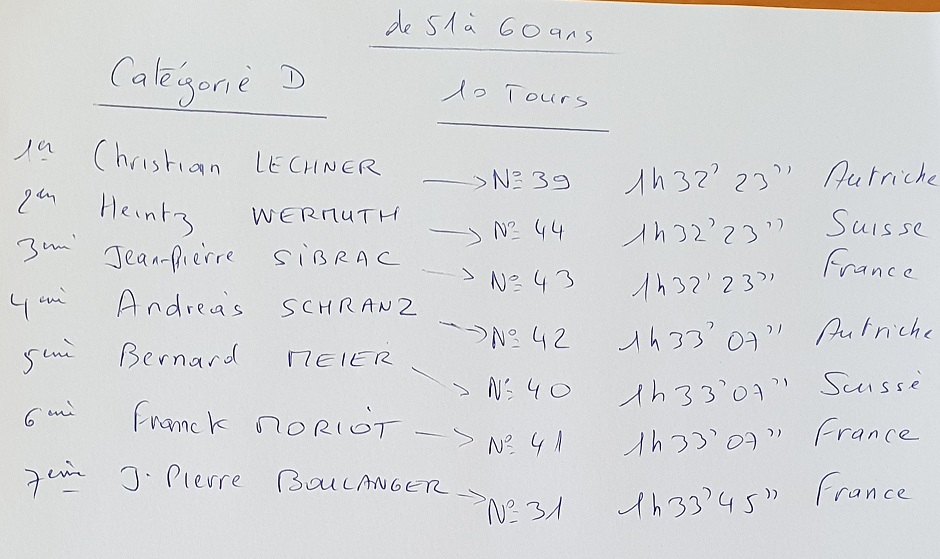 de 51 à 60 ans
Catégorie D
10 Tours
1er Christian LECHNER → N° 39 1h32'23'' Autriche
2em Heintz WERMUTH → N° 44 1h32'23'' Suisse
3emi Jean-Pierre SIBRAC → N° 43 1h32'23'' France
4emi Andreas SCHRANZ → N° 42 1h33'07'' Autriche
5emi Bernard MEIER → N° 40 1h33'07'' Suisse
6emi Franck MORIOT → N° 41 1h33'07'' France
7emi J. Pierre BOULANGER → N° 31 1h33'45'' France